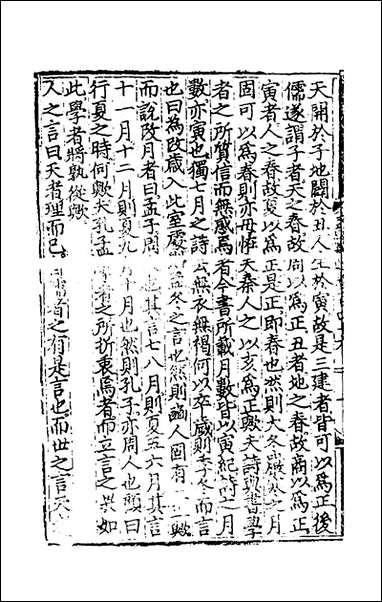 天開於子地闢於丑人生於寅故是三建者皆可以為正後
儒遂謂子者天之春故周以為正丑者地之春故商以為正
寅者人之春故夏以為正是正即春也然則大冬嚴寒之月
固可以為春則亦毋怪夫秦人之以亥為正歟夫詩與書學
者之所質信而無惑焉者今書所載月數皆以寅紀詩之月
數亦寅也獨七月之詩云無衣無褐何以卒歲則季冬而言
也曰為改歲入此室處孟冬之言也然則豳人固有歟
而說改月者曰孟子周也其言七八月則夏五六月其言
十一月十二月則夏九十月也然則孔子亦周人也顧曰
行夏之時何歟夫孔孟者之所折衷焉者而立言之異如
此學者將孰從歟
人之言曰天者理而已者之有是言也而世之言天